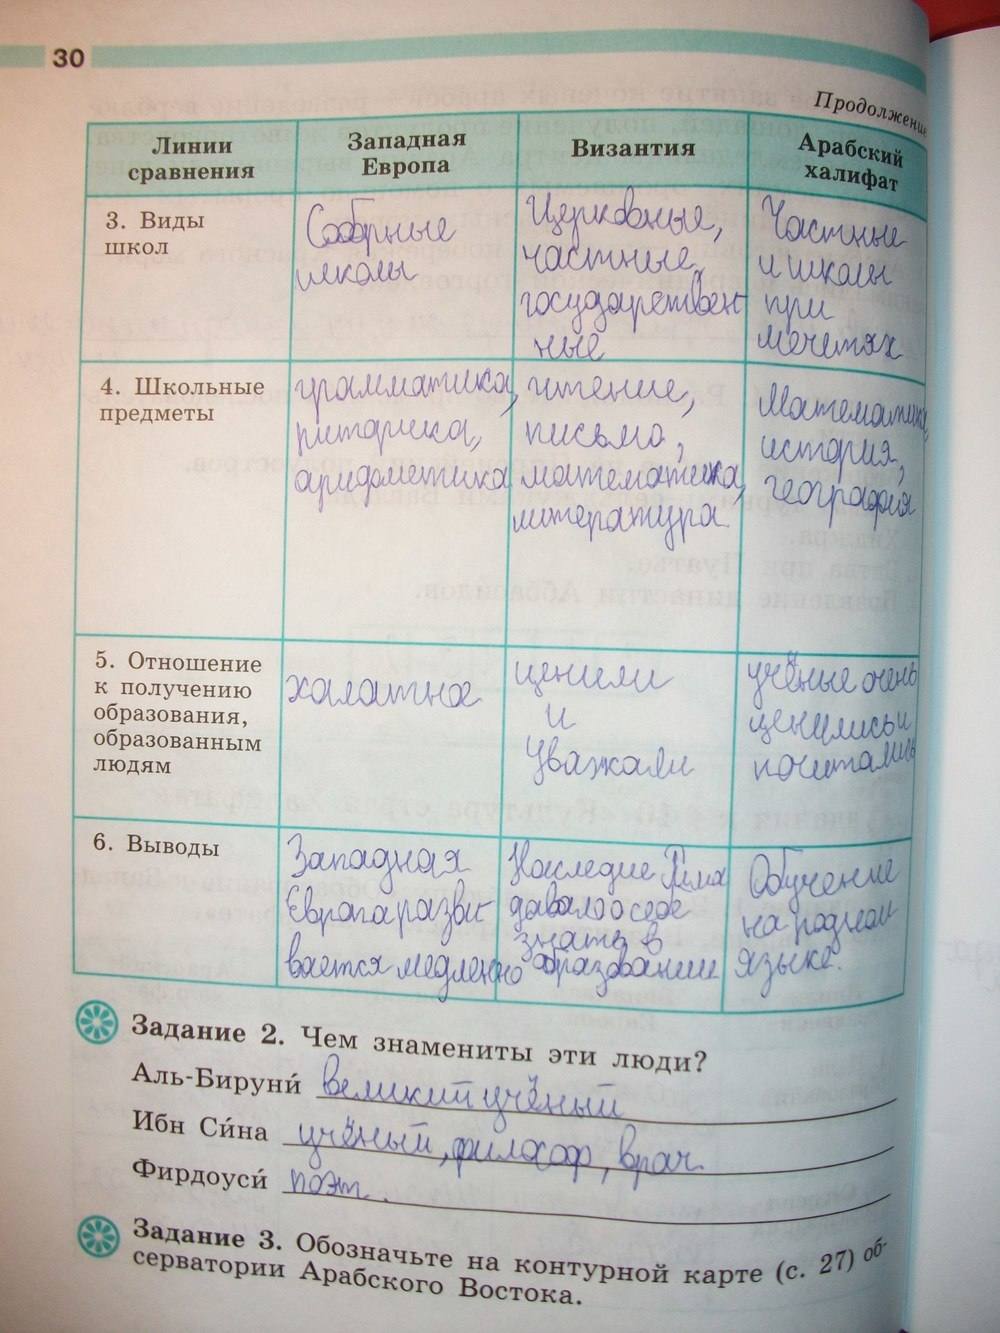 30
Продолжение
Линии
сравнения
Западная
Европа
Византия
Арабский
халифат
3. Виды
школ
Соборные
школы
Церковные,
частные,
государствен
ные
Частные
и школы
при
мечетях
4. Школьные
предметы
грамматика,
риторика,
арифметика
чтение,
письмо,
математика,
литература
Математика,
история,
география
5. Отношение
к получению
образования,
образованным
людям
халатное
ценили
и
уважали
учёные очень
ценились и
почитались
6. Выводы
Западная
Европа разви-
вается медленно
Наследие Рима
давало о себе
знать в
образовании
Обучение
на родном
языке.
Задание 2. Чем знамениты эти люди?
Аль-Бируни́ великий учёный
Ибн Си́на учёный, философ, врач
Фирдоуси́ поэт.
Задание 3. Обозначьте на контурной карте (с. 27) об-
серватории Арабского Востока.